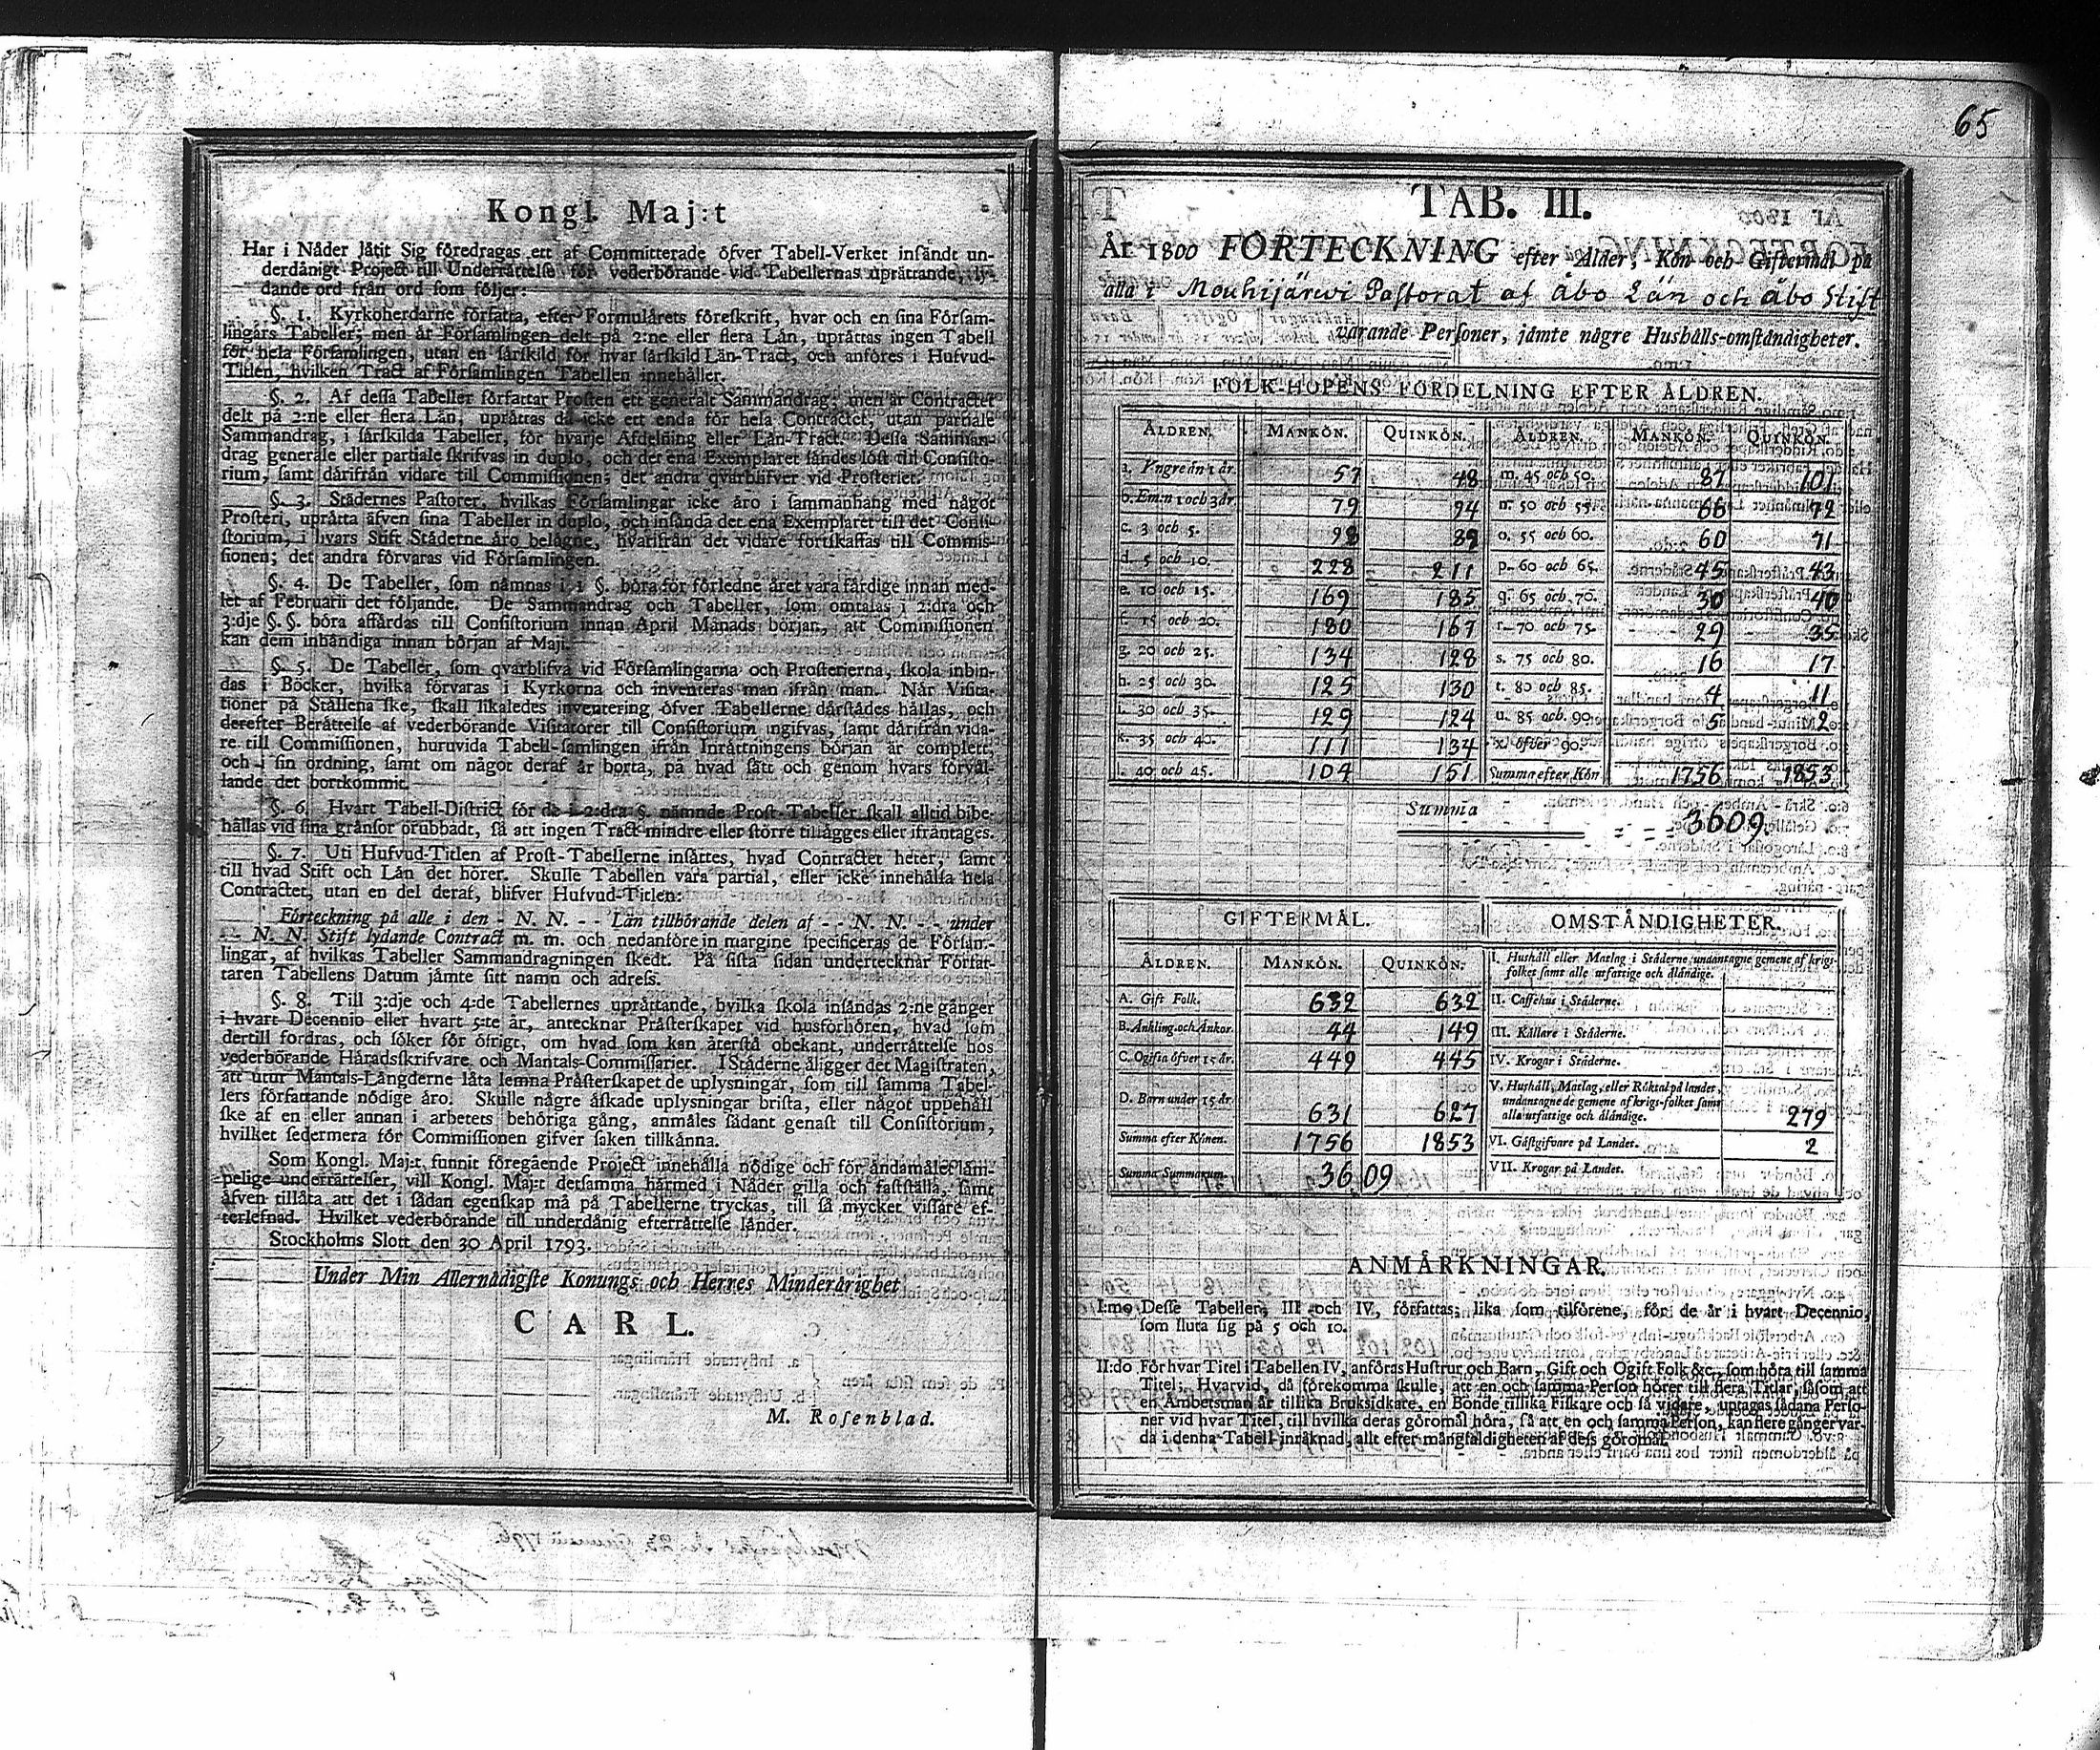 65
Kongl. Maj:t
Har i Nåder låtit Sig föredragas ett af Committerade öfver Tabell-Verket insändt un-
derdånigt Project till Underrättelse för vederbörande vid Tabellernas uprättande, ly-
dande ord från ord som följer:
§. 1. Kyrkoherdarne författa, efter Formulårets föreskrift, hvar och en sina Försam-
lingars Tabeller; men är Församlingen delt på 2:ne eller flera Län, uprättas ingen Tabell
för hela Församlingen, utan en särskild för hvar särskild Län-Tract, och anföres i Hufvud-
Titlen, hvilken Tract af Församlingen Tabellen innehåller.
§. 2. Af dessa Tabeller författar Prosten ett generalt Sammandrag; men är Contractet
delt på 2:ne eller flera Län, uprättas då icke ett enda för hela Contractet, utan partiale
Sammandrag, i särskilda Tabeller, för hvarje Afdelning eller Län-Tract. Dessa Samman-
drag generale eller partiale skrifvas in duplo, och det ena Exemplaret sändes löst till Consisto-
rium, samt därifrån vidare till Commissionen; det andra qvarblifver vid Prosteriet.
§. 3. Städernes Pastorer, hvilkas Församlingar icke äro i sammanhang med något
Prosteri, uprätta äfven sina Tabeller in duplo, och insända det ena Exemplaret till det Consi-
storium, i hvars Stift Städerne äro belägne, hvarifrån det vidare fortskaffas till Commis-
sionen; det andra förvaras vid Församlingen.
§. 4. De Tabeller, som nämnas i 1 §. böra för förledne året vara färdige innan med-
let af Februarii det följande. De Sammandrag och Tabeller, som omtalas i 2:dra och
3:dje §. §. böra affärdas till Consistorium innan April Månads början, att Commissionen
kan dem inhändiga innan början af Maji.
§. 5. De Tabeller, som qvarblifva vid Församlingarna och Prosterierna, skola inbin-
das i Böcker, hvilka förvaras i Kyrkorna och inventeras man ifrån man. När Visita-
tioner på Ställena ske, skall likaledes inventering öfver Tabellerne därstädes hållas, och
derefter Berättelse af vederbörande Visitatorer till Consistorium ingifvas, samt därifrån vida-
re till Commissionen, huruvida Tabell-samlingen ifrån Inrättningens början är complett,
och i sin ordning, samt om något deraf är borta, på hvad sätt och genom hvars förvål-
lande det bortkommit.
§. 6. Hvart Tabell-District för de i 2:dra §. nämnde Prost-Tabeller skall alltid bibe-
hållas vid sina gränsor orubbadt, så att ingen Tract mindre eller större tillägges eller ifråntages.
§. 7. Uti Hufvud-Titlen af Prost-Tabellerne insättes, hvad Contractet heter, samt
till hvad Stift och Län det hörer. Skulle Tabellen vara partial, eller icke innehålla hela
Contractet, utan en del deraf, blifver Hufvud-Titlen:
Förteckning på alle i den - N. N. - - Län tillhörande delen af - - N. N. - - under
- - N. N. Stift lydande Contract m. m. och nedanföre in margine specificeras de Försam-
lingar, af hvilkas Tabeller Sammandragningen skedt. På sista sidan undertecknar Förfat-
taren Tabellens Datum jämte sitt namn och adress.
§. 8. Till 3:dje och 4:de Tabellernes uprättande, hvilka skola insändas 2:ne gånger
i hvart Decennio eller hvart 5:te år, antecknar Prästerskapet vid husförhören, hvad som
dertill fordras, och söker för öfrigt, om hvad som kan återstå obekant, underrättelse hos
vederbörande Häradsskrifvare och Mantals-Commissarier. I Städerne åligger det Magistraten,
att utur Mantals-Längderne låta lemna Prästerskapet de uplysningar, som till samma Tabel-
lers författande nödige äro. Skulle några äskade uplysningar brista, eller något uppehåll
ske af en eller annan i arbetets behöriga gång, anmäles sådant genast till Consistorium,
hvilket sedermera för Commissionen gifver saken tillkänna.
Som Kongl. Maj:t funnit föregående Project innehålla nödige och för ändamålet läm-
pelige underrättelser, vill Kongl. Maj:t detsamma härmed i Nåder gilla och fastställa, samt
äfven tillåta att det i sådan egenskap må på Tabellerne tryckas, till så mycket vissare ef-
terlefnad. Hvilket vederbörande till underdånig efterrättelse länder.
Stockholms Slott den 30 April 1793.
Under Min Allernådigste Konungs och Herres Minderårighet
CARL.
M. Rosenblad.
TAB. III.
År 1800 FÖRTECKNING efter Ålder, Kön och Giftermål på
alla i Mouhijärwi Pastorat af Åbo Län och Åbo Stift
varande Personer, jämte någre Hushålls-omständigheter.
FOLK-HOPENS FÖRDELNING EFTER ÅLDREN.
ÅLDREN. MANKÖN. QUINKÖN. ÅLDREN. MANKÖN. QUINKÖN.
a. Yngre än 1 år. 57 48 m. 45 och 50. 87 101
b. Em:n 1 och 3 år. 79 94 n. 50 och 55. 66 72
c. 3 och 5. 98 89 o. 55 och 60. 60 71
d. 5 och 10. 228 211 p. 60 och 65. 45 43
e. 10 och 15. 169 185 q. 65 och 70. 30 40
f. 15 och 20. 180 167 r. 70 och 75. 29 35
g. 20 och 25. 134 128 s. 75 och 80. 16 17
h. 25 och 30. 125 130 t. 80 och 85. 4 11
i. 30 och 35. 129 124 u. 85 och 90. 5 2
k. 35 och 40. 111 134 x. öfver 90.
l. 40 och 45. 104 151 Summa efter Kön 1756 1853
Summa = = = 3609.
GIFTERMÅL. OMSTÄNDIGHETER.
ÅLDREN. MANKÖN. QUINKÖN. I. Hushåll eller Matlag i Städerne undantagne gemene af krigs-
folket samt alle utfattige och åländige.
A. Gift Folk. 632 632 II. Caffehus i Städerne.
B. Änkling. och Änkor. 44 149 III. Källare i Städerne.
C. Ogifta öfver 15 år. 449 445 IV. Krogar i Städerne.
D. Barn under 15 år. 631 627 V. Hushåll, Matlag, eller Röktal på landet,
undantagne de gemene af krigs-folket samt
alla utfattige och åländige. 279
Summa efter Könen. 1756 1853 VI. Gästgifvare på Landet. 2
Summa Summarum. 3609 VII. Krogar på Landet.
ANMÄRKNINGAR.
I:mo Desse Tabeller, III och IV, författas, lika som tilförene, för de år i hvart Decennio,
som sluta sig på 5 och 10.
II:do För hvar Titel i Tabellen IV, anföras Hustrur och Barn, Gift och Ogift Folk &c., som höra till samma
Titel. Hvarvid, då förekomma skulle, att en och samma Person hörer till flera Titlar, såsom att
en Ämbetsman är tillika Bruksidkare, en Bonde tillika Fiskare och så vidare, uptagas sådana Perso-
ner vid hvar Titel, till hvilka deras göromål höra, så att en och samma Person, kan flere gånger var-
da i denna Tabell inräknad, allt efter mångfaldigheten af dess göromål.